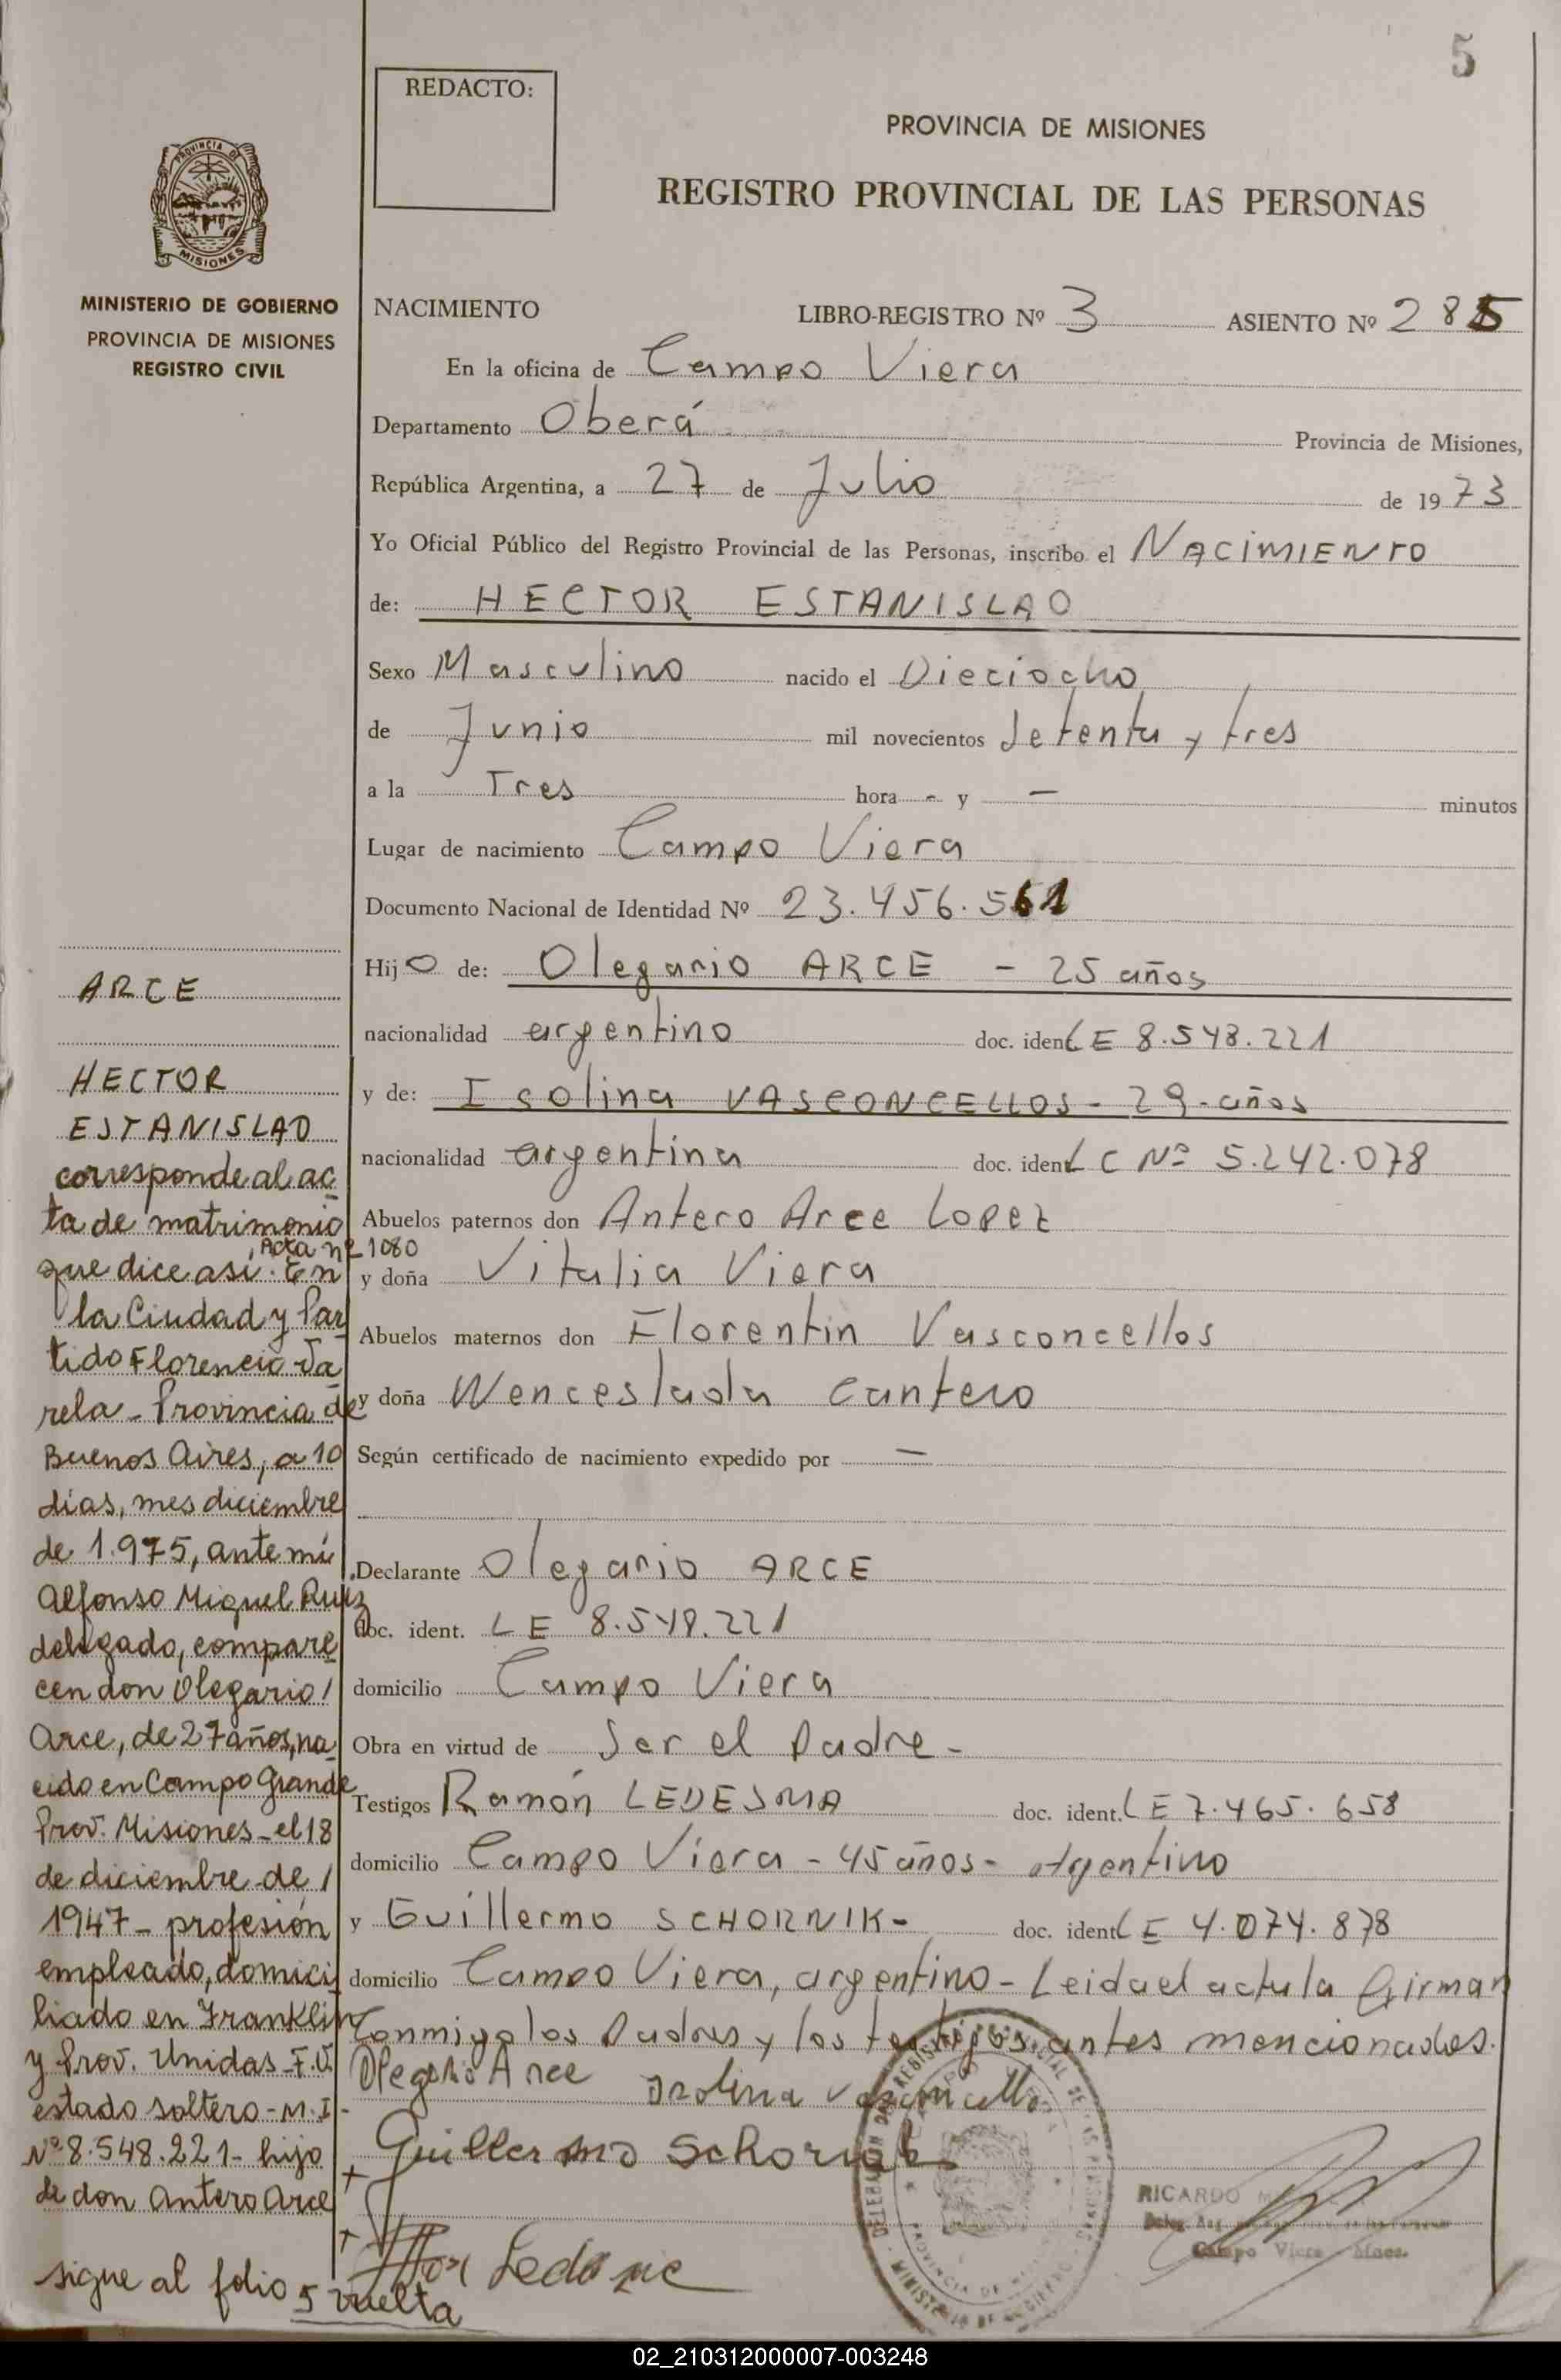 5
REDACTO:
PROVINCIA DE MISIONES
REGISTRO PROVINCIAL DE LAS PERSONAS
PROVINCIA DE
MISIONES
MINISTERIO DE GOBIERNO
PROVINCIA DE MISIONES
REGISTRO CIVIL
NACIMIENTO LIBRO-REGISTRO Nº 3 ASIENTO Nº 285
En la oficina de Campo Viera
Departamento Oberá Provincia de Misiones,
República Argentina, a 27 de Julio de 1973
Yo Oficial Público del Registro Provincial de las Personas, inscribo el NACIMIENTO
de: HECTOR ESTANISLAO
Sexo Masculino nacido el Dieciocho
de Junio mil novecientos Setenta y tres
a la Tres hora - y - minutos
Lugar de nacimiento Campo Viera
Documento Nacional de Identidad Nº 23.456.561
Hijo de: Olegario ARCE - 25 años
nacionalidad argentino doc. ident LE 8.548.221
y de: Isolina VASCONCELLOS - 29 - años
nacionalidad argentina doc. ident LC Nº 5.242.078
Abuelos paternos don Antero Arce Lopez
y doña Vitalia Viera
Abuelos maternos don Florentin Vasconcellos
y doña Wenceslada Cantero
Según certificado de nacimiento expedido por -
Declarante Olegario ARCE
doc. ident. LE 8.548.221
domicilio Campo Viera
Obra en virtud de Ser el Padre -
Testigos Ramón LEDESMA doc. ident. LE 7.465.658
domicilio Campo Viera - 45 años - argentino
y Guillermo SCHORNIK - doc. ident LE 4.074.878
domicilio Campo Viera, argentino - Leida el acta la firman
Conmigo los Padres y los testigos antes mencionados.
Olegario Arce Isolina Vasconcello
Guillermo Schornik
RICARDO
Campo Viera - Mnes.
ARCE
HECTOR
ESTANISLAO
corresponde al ac
ta de matrimonio
Acta nº 1080
que dice asi: En
la Ciudad y Par
tido Florencio Va
rela - Provincia de
Buenos Aires, a 10
dias, mes diciembre
de 1.975, ante mí
Alfonso Miguel Ruiz
delegado, compare
cen don Olegario /
Arce, de 27 años, na
cido en Campo Grande
Prov. Misiones - el 18
de diciembre de /
1947 - profesión
empleado, domici
liado en Franklin
y Prov. Unidas - F.V.
estado soltero - M.I -
Nº 8.548.221 - hijo
de don Antero Arce
sigue al folio 5 vuelta
02_210312000007-003248